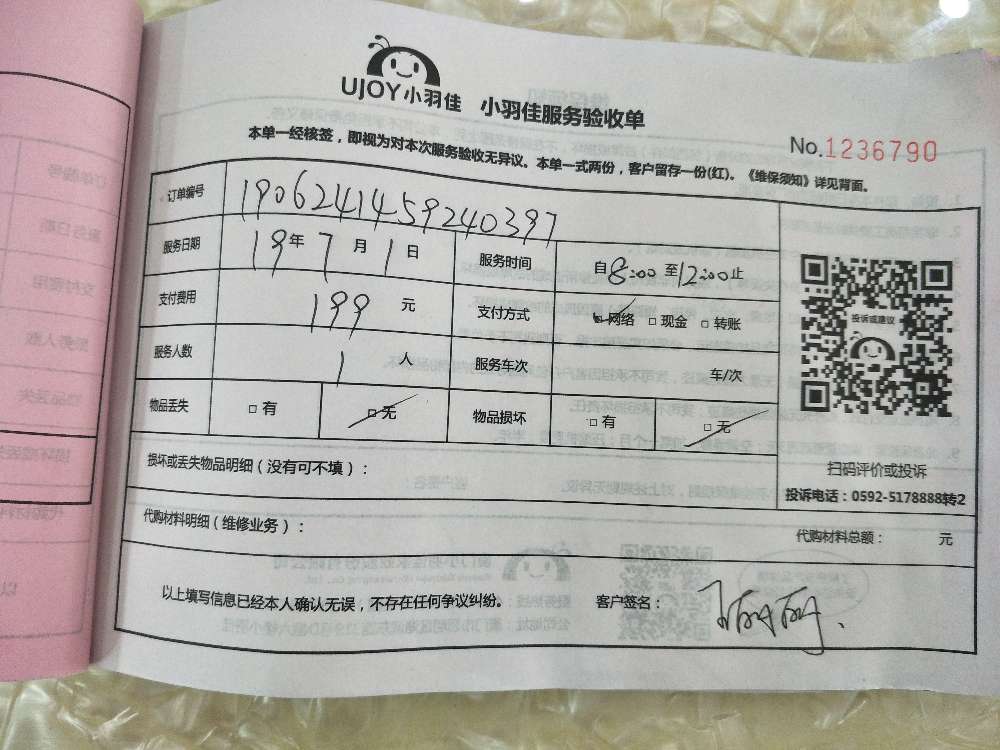 UJOY小羽佳 小羽佳服务验收单
No.1236790
本单一经核签，即视为对本次服务验收无异议。本单一式两份，客户留存一份(红)。《维保须知》详见背面。
订单编号 1906241459240397
服务日期 19年7月1日 服务时间 自8:00至12:00止
支付费用 199 元 支付方式 □网络 □现金 □转账
服务人数 1 人 服务车次 车/次
物品丢失 □有 □无 物品损坏 □有 □无
投诉或建议
扫码评价或投诉
投诉电话：0592-5178888转2
损坏或丢失物品明细（没有可不填）：
代购材料明细（维修业务）： 代购材料总额： 元
以上填写信息已经本人确认无误，不存在任何争议纠纷。 客户签名：